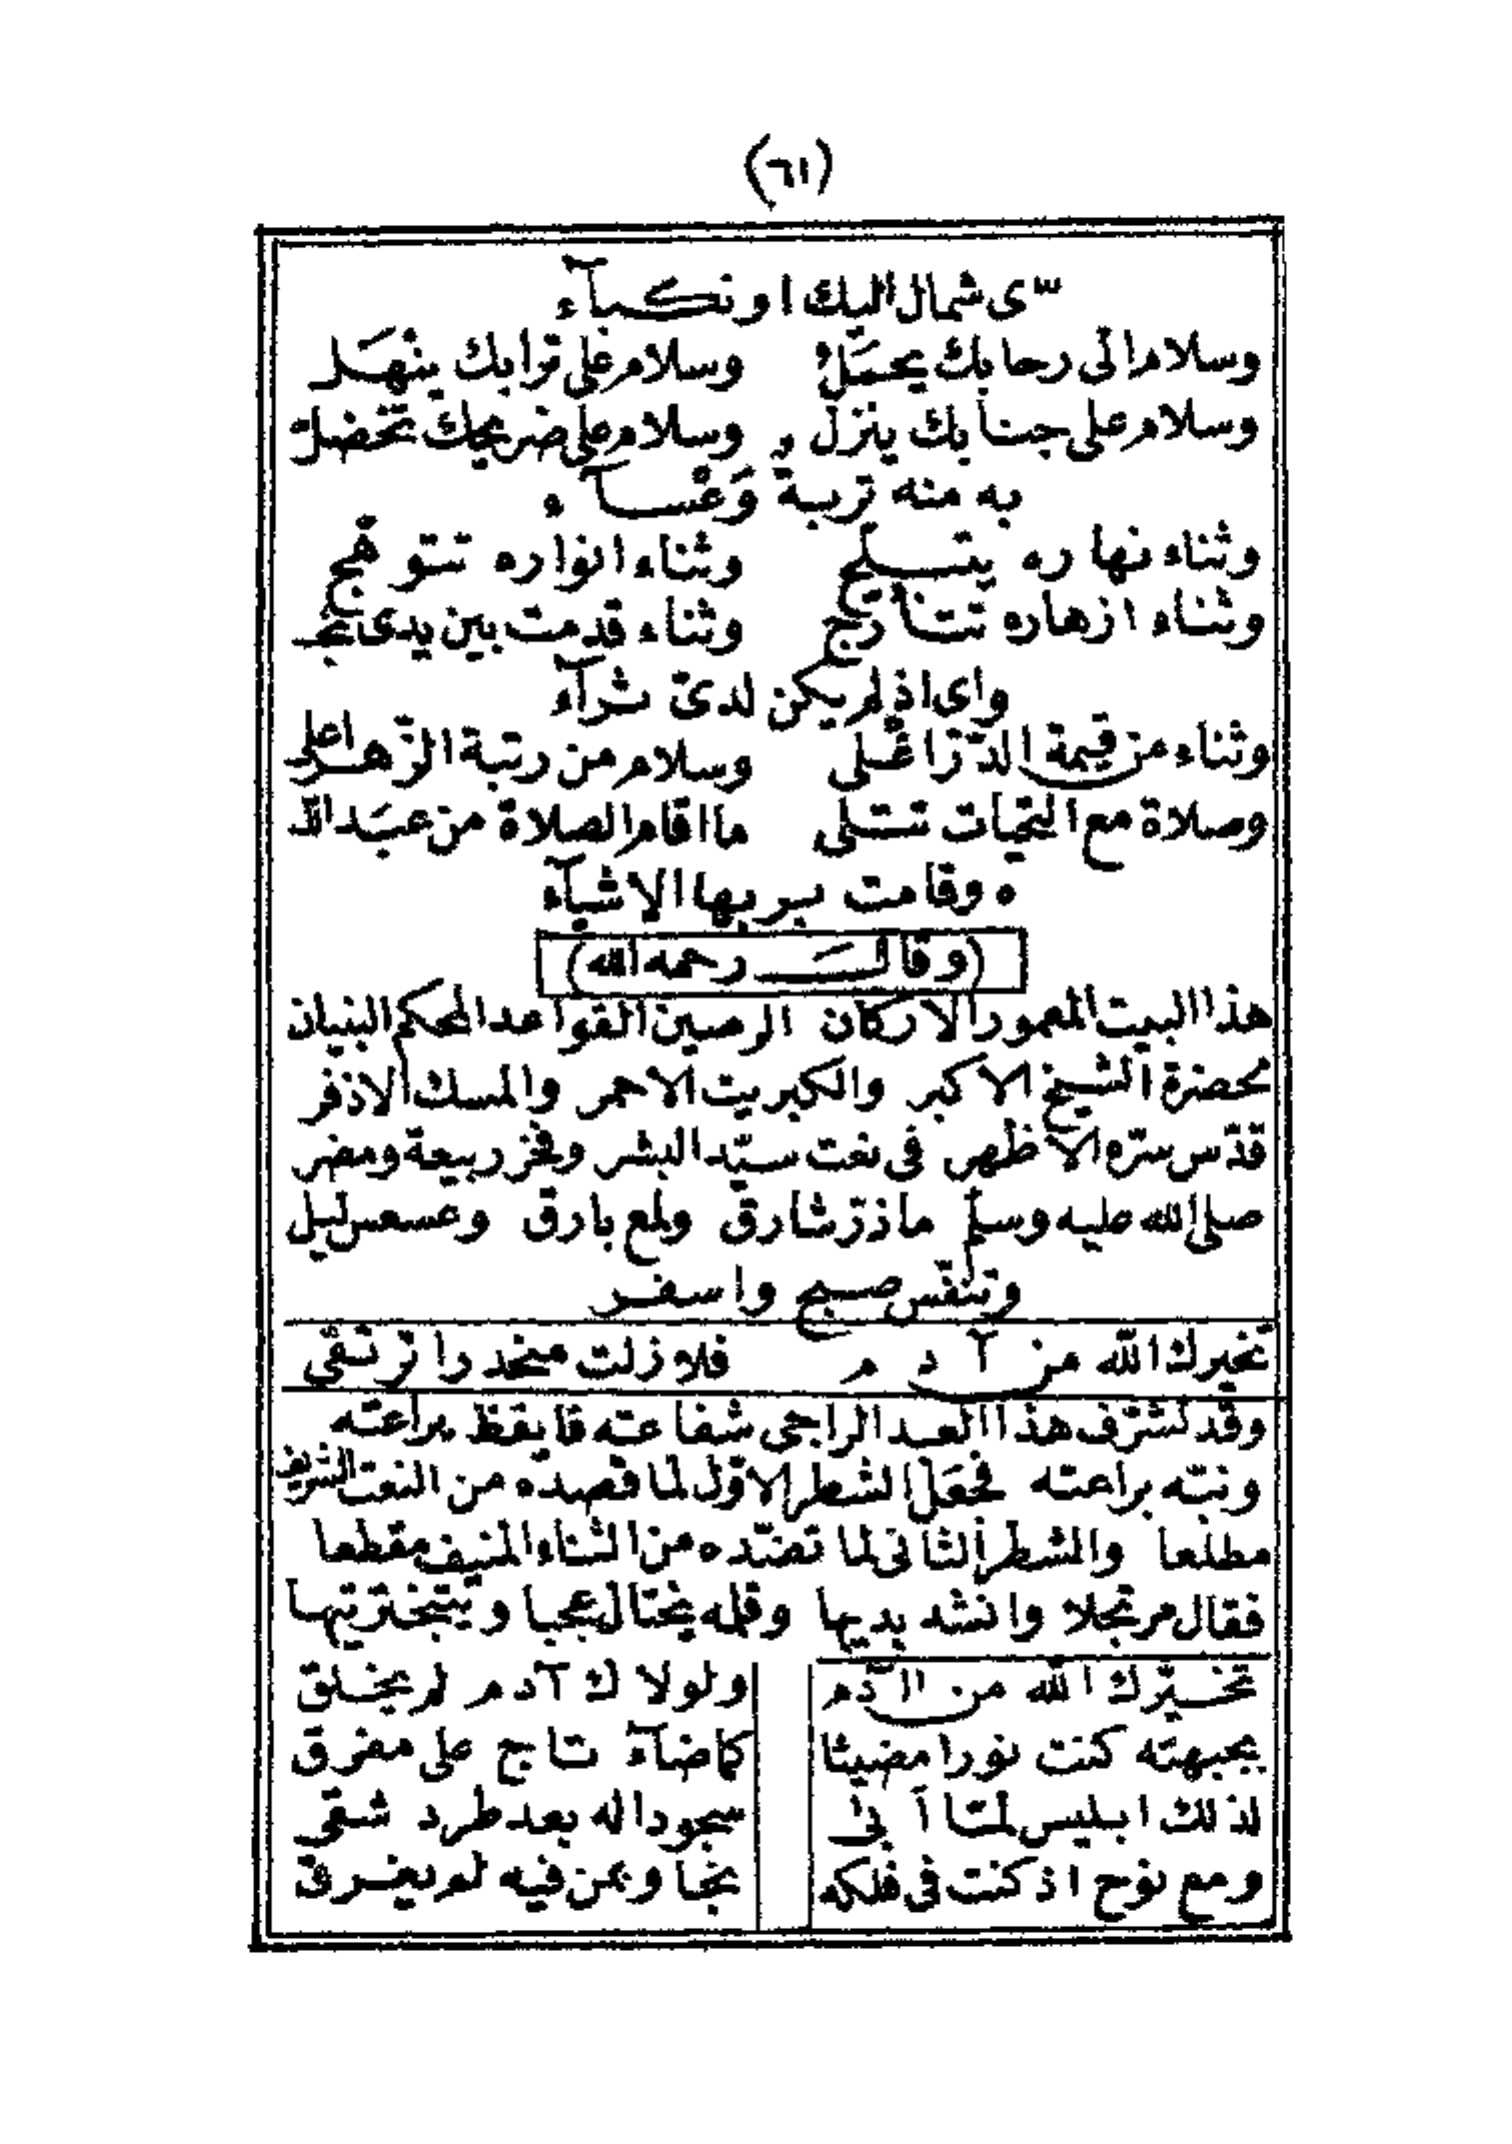 (٦١)
ّسى شمال اليك او نكبآء
وسلام الى رحابك يحمَل وسلام على ترابك ينهَل
وسلام على جنابك ينزل وسلام على ضريحك تخضل
به منه تربة وَعْسآء
وثناء نهاره يتبلّج وثناء انواره تتوهّج
وثناء ازهاره تتأرّج وثناء قدمت بين يدى نجـ
واى اذ لم يكن لدىّ ثرآء
وثناء من قيمة الدّرّ اغْلى وسلام من رتبة الزّهر اعلى
وصلاة مع التحيّات تتلى ما اقام الصلاة من عبَد اللّـ
ه وقامت بربها الاشيآء
(وقالَ رحمه الله)
هذا البيت المعمور الاركان الرصين القواعد المحكم البنيان
لحضرة الشيخ الاكبر والكبريت الاحمر والمسك الاذفر
قدّس سرّه الاظهر فى نعت سيّد البشر وفخر ربيعة ومضر
صلى الله عليه وسلّم ماذرّ شارق ولمع بارق وعسعس ليل
وتنفّس صبح واسفر
تخيرك الله من آدم فلا زلت منحدرا ترتقى
وقد تشرّف هذا العبد الراجى شفاعته فايقظ يراعته
ونبّه براعته فجعَل الشطر الاوّل لما قصده من النعت الشريف
مطلعا والشطر الثانى لما تصدّه من الثناء المنيف مقطعا
فقال مرتجلا وانشد بديها وقلمه يختال عجبا ويتبختر تيها
تخيّرك الله من آدم ولولاك آدم لم يخلق
بجبهته كنت نورا مضيئا كما ضآء تاج على مفرق
لذلك ابليس لمّا أبى سجودا له بعد طرد شقى
ومع نوح اذ كنت فى فلكه نجا وبمن فيه لم يغرق